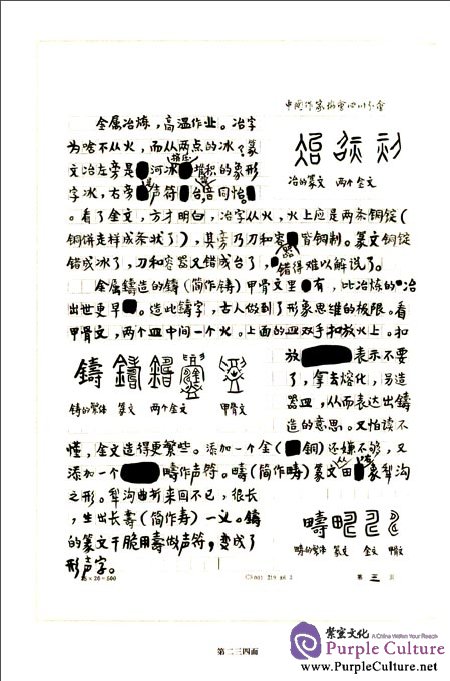 中国作家协会四川分会
金属冶炼，高温作业。冶字
为啥不从火，而从两点的冰？篆
文冶左旁是河冰挤压堆积的象形
字冰，右旁声符台，台同怡
。看了金文，方才明白，冶字从火，火上应是两条铜锭（
铜饼走样成条状了），其旁乃刀和容器皆铜制。篆文铜锭
错成冰了，刀和容器又错成台了，错得难以解说了。
冶的篆文 两个金文
金属鑄造的鑄（简作铸）甲骨文里有，比冶炼的冶
出世更早。造此鑄字，古人做到了形象思维的极限。看
甲骨文，两个皿中间一个火。上面的皿双手扣放火上。扣
放表示不要
了，拿去熔化，另造
器皿，从而表达出鑄
造的意思。又怕读不
鑄
鑄的繁体 篆文 两个金文 甲骨文
懂，金文造得更繁些。添加一个金（铜）还嫌不够，又
添加一个疇作声符。疇（简作畴）篆文田象犁沟
之形。犁沟曲折来回不已，很长
，生出长壽（简作寿）一义。鑄
的篆文干脆用壽做声符，变成了
形声字。
疇
疇的繁体 篆文 金文 甲骨
25×20=500
第 三 页
第二三四面
紫宝文化
A China Within Your Reach
Purple Culture
www.PurpleCulture.net